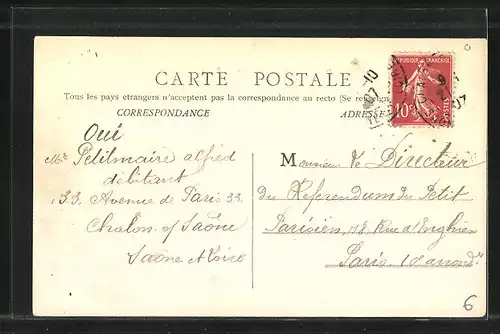 CARTE POSTALE
Tous les pays étrangers n'acceptent pas la correspondance au recto (Se
CORRESPONDANCE
ADRESSE
REPUBLIQUE FRANÇAISE
10
POSTES
10
07
07
Oui
Mr Petitmaire alfred
débitant
33 Avenue de Paris 33
Chalon s/ Saône
Saône et Loire
Monsieur le Directeur
du Referendum du Petit
Parisien, 18, Rue d'Enghien
Paris 10 arrondt
6